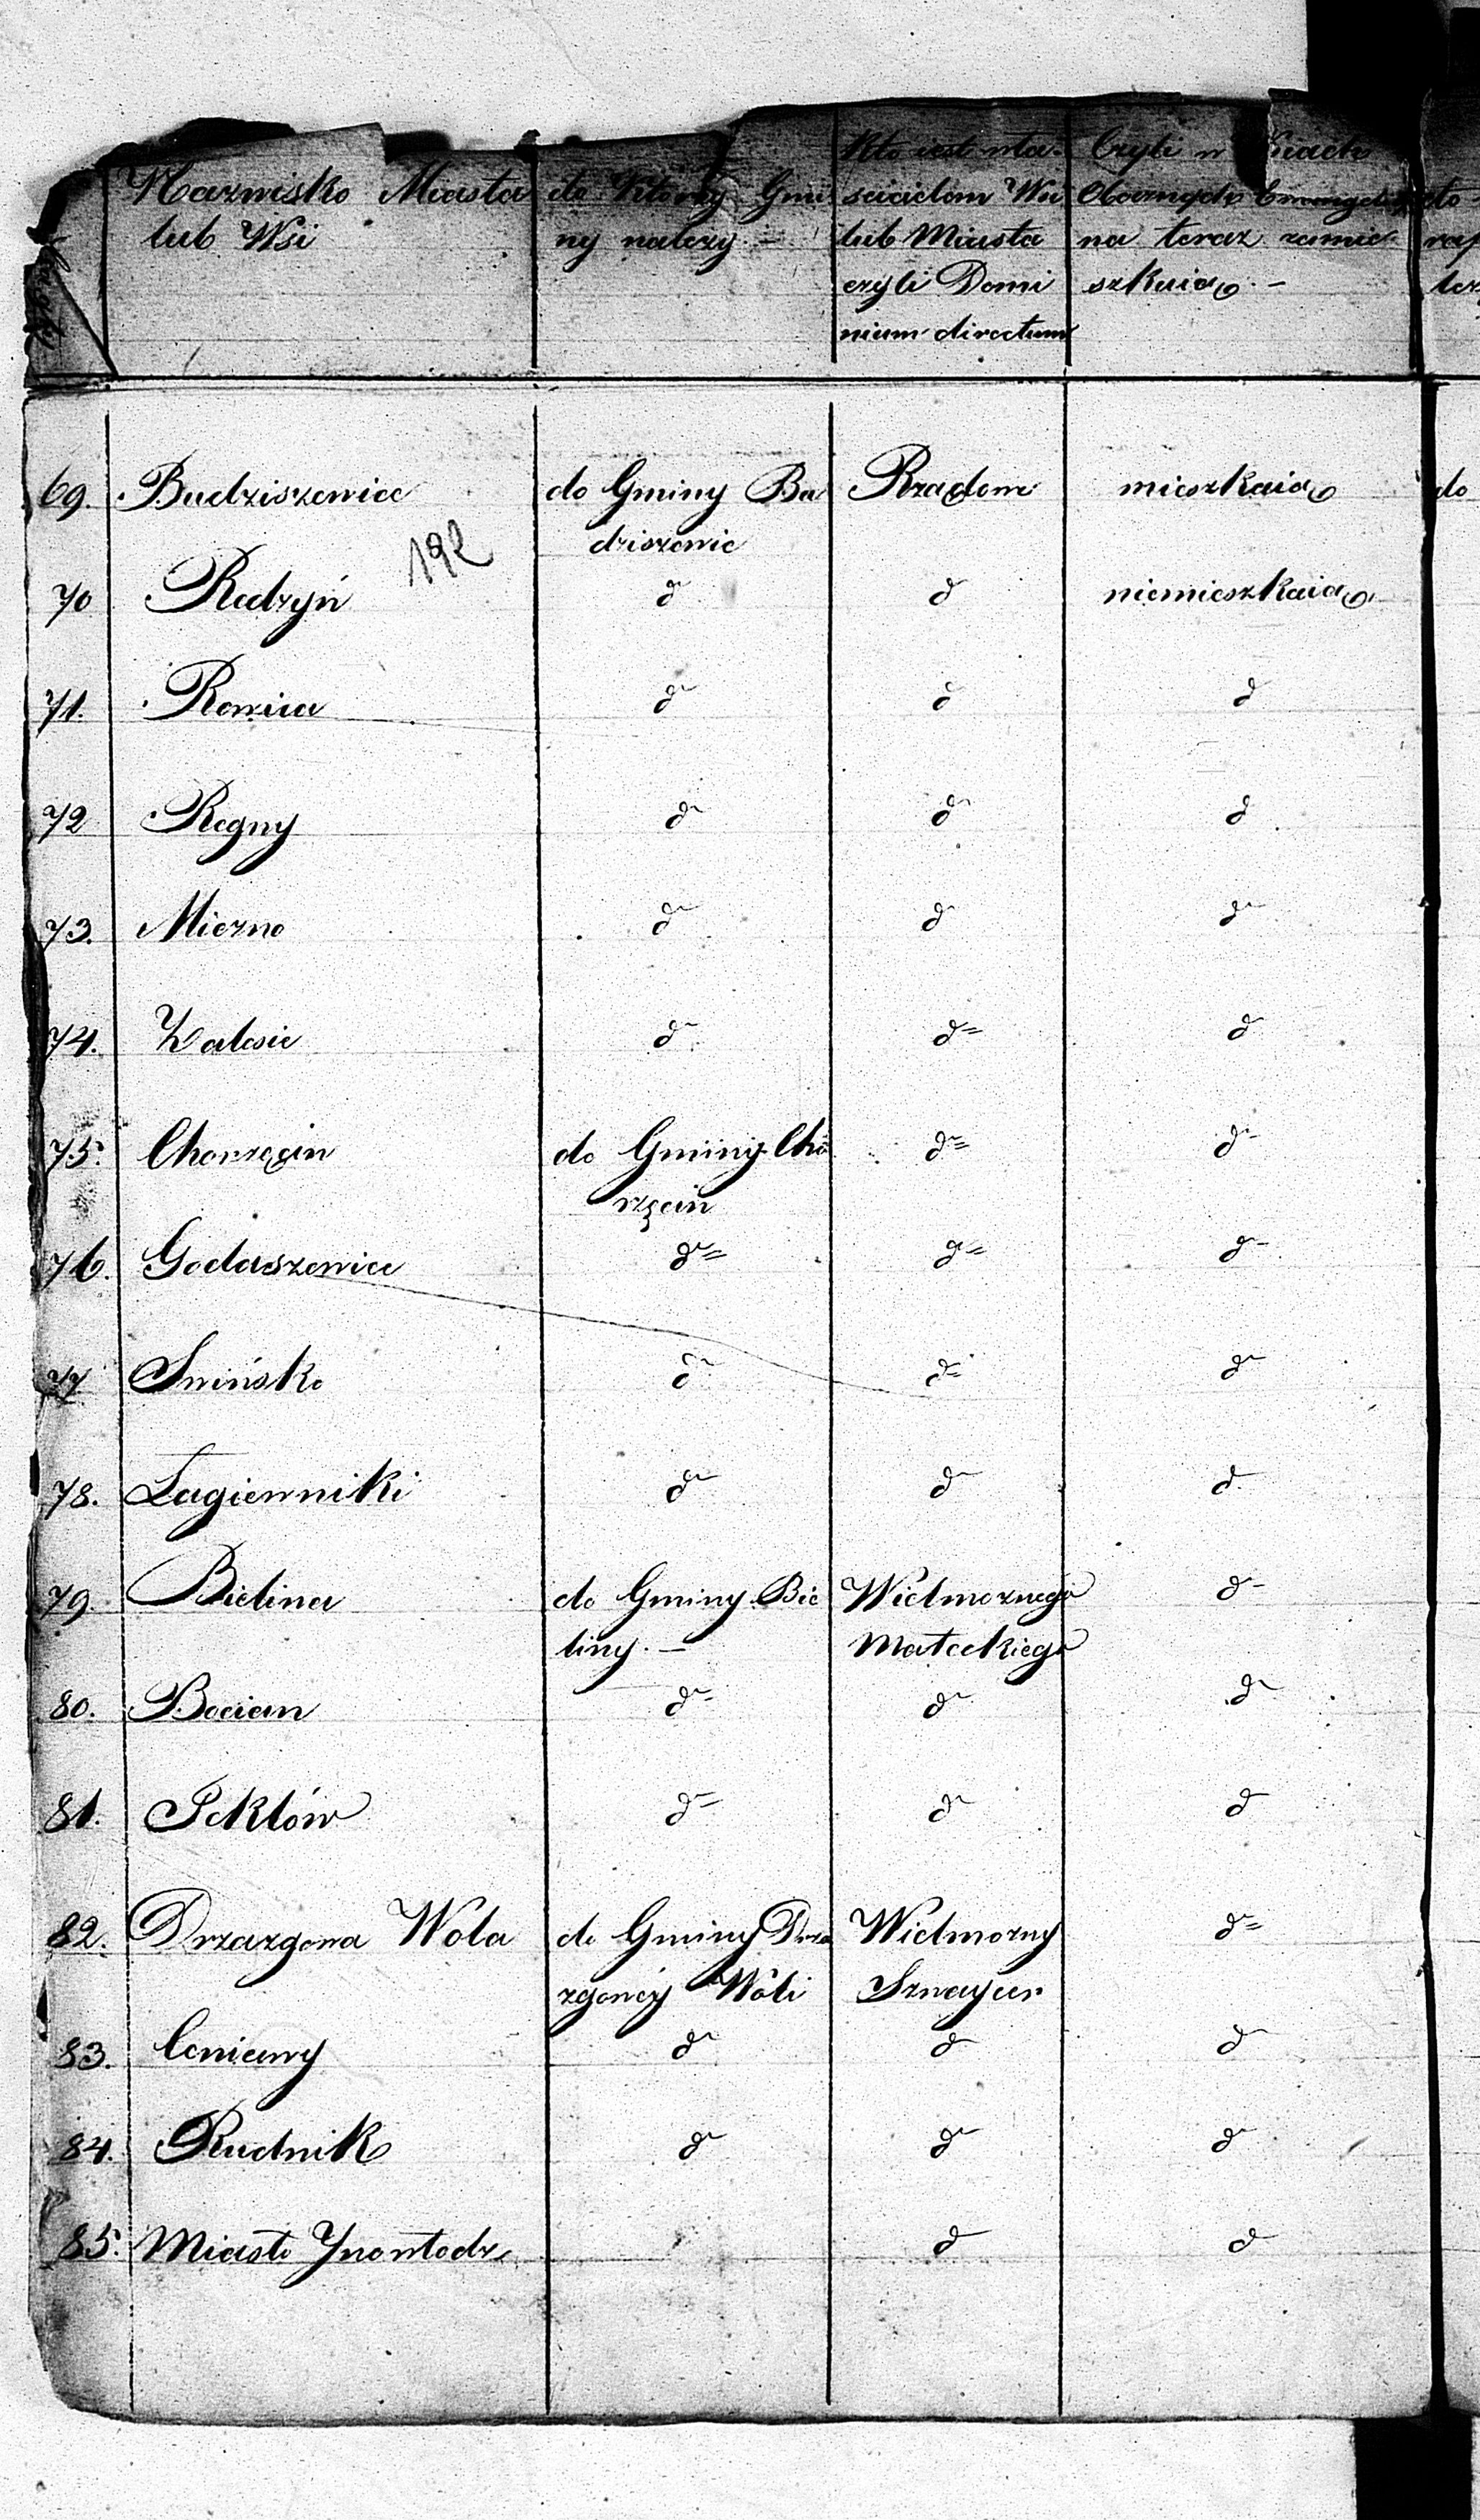 Nazwisko Miasta lub Wsi
do Którey Gminy należy. –
Kto iest wła-
ścicielem Wsi
lub Miasta
czyli Domi
nium directum
Czyli w
na teraz zamie-
szkaią. –
69. Budziszewice do Gminy Bu Rządowe mieszkaią do
dziszewic
192
70 Redzyń d d niemieszkaią
71. Rewica d d d
72 Regny d d d
73. Mierzno d d d
74. Zalesie d d d
75. Chorzęcin do Gminy Cho d d
rzęcin
76. Godaszewice d d d
77 Swińsko d d d
78. Łagiewniki d d d
79. Bielina do Gminy Bie Wielmożnego d
liny. – Małeckiego
80. Bocian d d d
81. Teklów d d d
82. Drzazgowa Wola do Gminy Drza Wielmożny d
zgowéy Woli Sznayder
83. Ceniawy d d d
84. Rudnik d d d
85. Miasto Ynowłodz d d